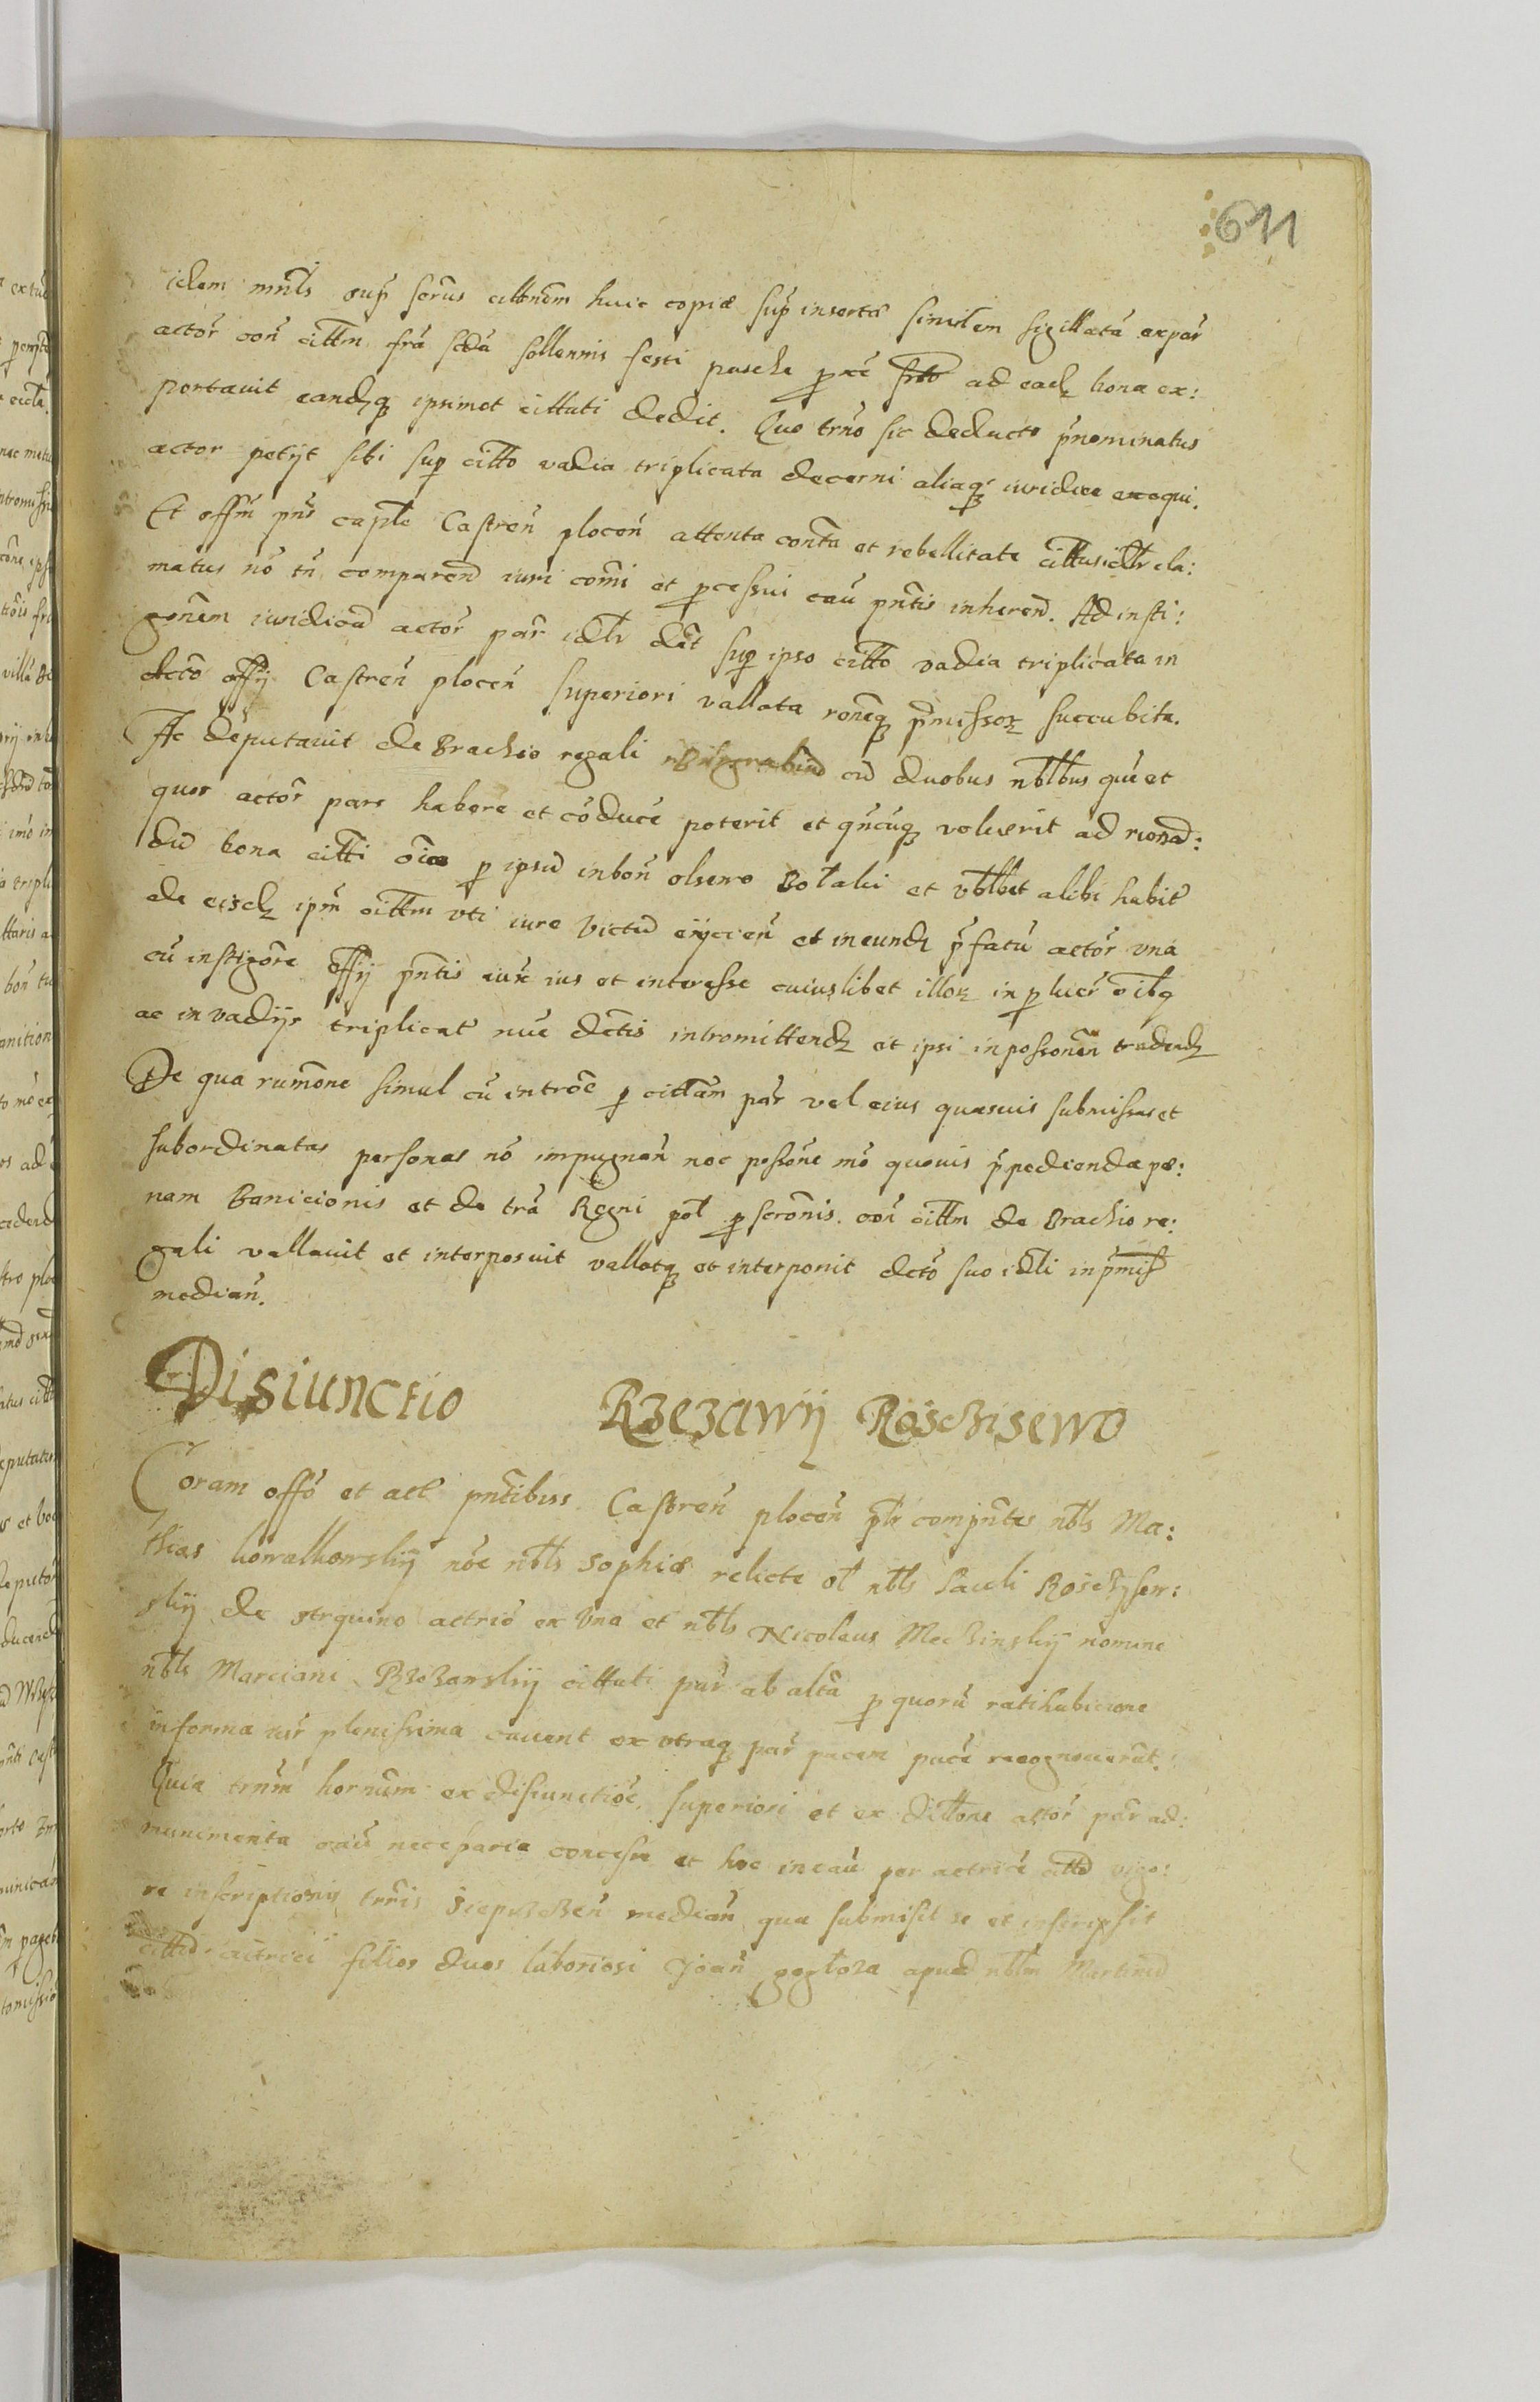 611
idem mnlis sup scrius cittnem huic copiæ sup insertæ similem sigillatã ex par
actoř coň cittm frã scda sollennis festi paschæ pxe ad eadz bona ex:
portauit eandzq ipsimet cittati dedit. Quo trno sic deducto pnominatus
actor petijt sibi sup citto vadia triplicata decerni aliaq iuridice exequi.
Et offm pns captle Castreň ploceň attenta conta et rebellitate cittus idtr cla:
matus nõ tň comparend iuri comi et pcessui cau pntis inherend. Ad insti:
gonem iuridicã actoř par idtr dat sup ipso citto vadia triplicata in
decto offij Castreň ploceň superiori vallata roneq pmissorz succubita.
Ac deputauit de Brachio regali cũ duobus nbilbus que et
quos actoř pars habere et coduce poterit et qncuq voluerit ad rumad:
dũ bona citti oia p ipsũ in boň olsewo Botaki et vbilbet alibi habit
de eisdz ipm cittm vti iure victũ eijcieň et ineundz pfatũ actoř vna
cũ instigore offij pntis iure ius et interesse cuiuslibet illorz in p lucr oibq
ac in vadijs triplicat nũc dctis intromittendz et ipsi in possonem tradendz
De qua rumone simul cũ introe p cittam par vel eius quasuis submissas et
subordinatas personas nõ impugnaň nec possone mõ quouis ppedienda pæ:
nam Banicionis et de tra Regni pol pscronis coň cittm de Brachio re:
gali vallauit et interposuit vallatq et interponit dcto suo idli in pmiss
mediaň.
Disiunctio Rzezawij Rosciisewo
Coram offo et act pntibus Castreň ploceň plr compntes nbls Ma:
thias kowalkowskij noe nbls Sophiæ relicte ol nbls Pauli Rosciszew:
skij de strguino actrio ex vna et nbls Nicolaus Mochinskij nomine
nbls Marciani Rzezawskij cittati par ab altã p quorũ ratihabicione
in forma iur plenissima cauent ex vtraq par pacem pace recognouerũt.
Quia trnm hornum ex disiunctioe superiori et ex dittone actoř par ad:
munimenta cau necessaria concessa et hoc in cau per actrice citto vigo:
re inscriptionis trris Sieprzcheň mediaň qua submisit se et inscripsit
cittus actrici filios duos laboriosi Joaň gogloza apud nblm Martinũ